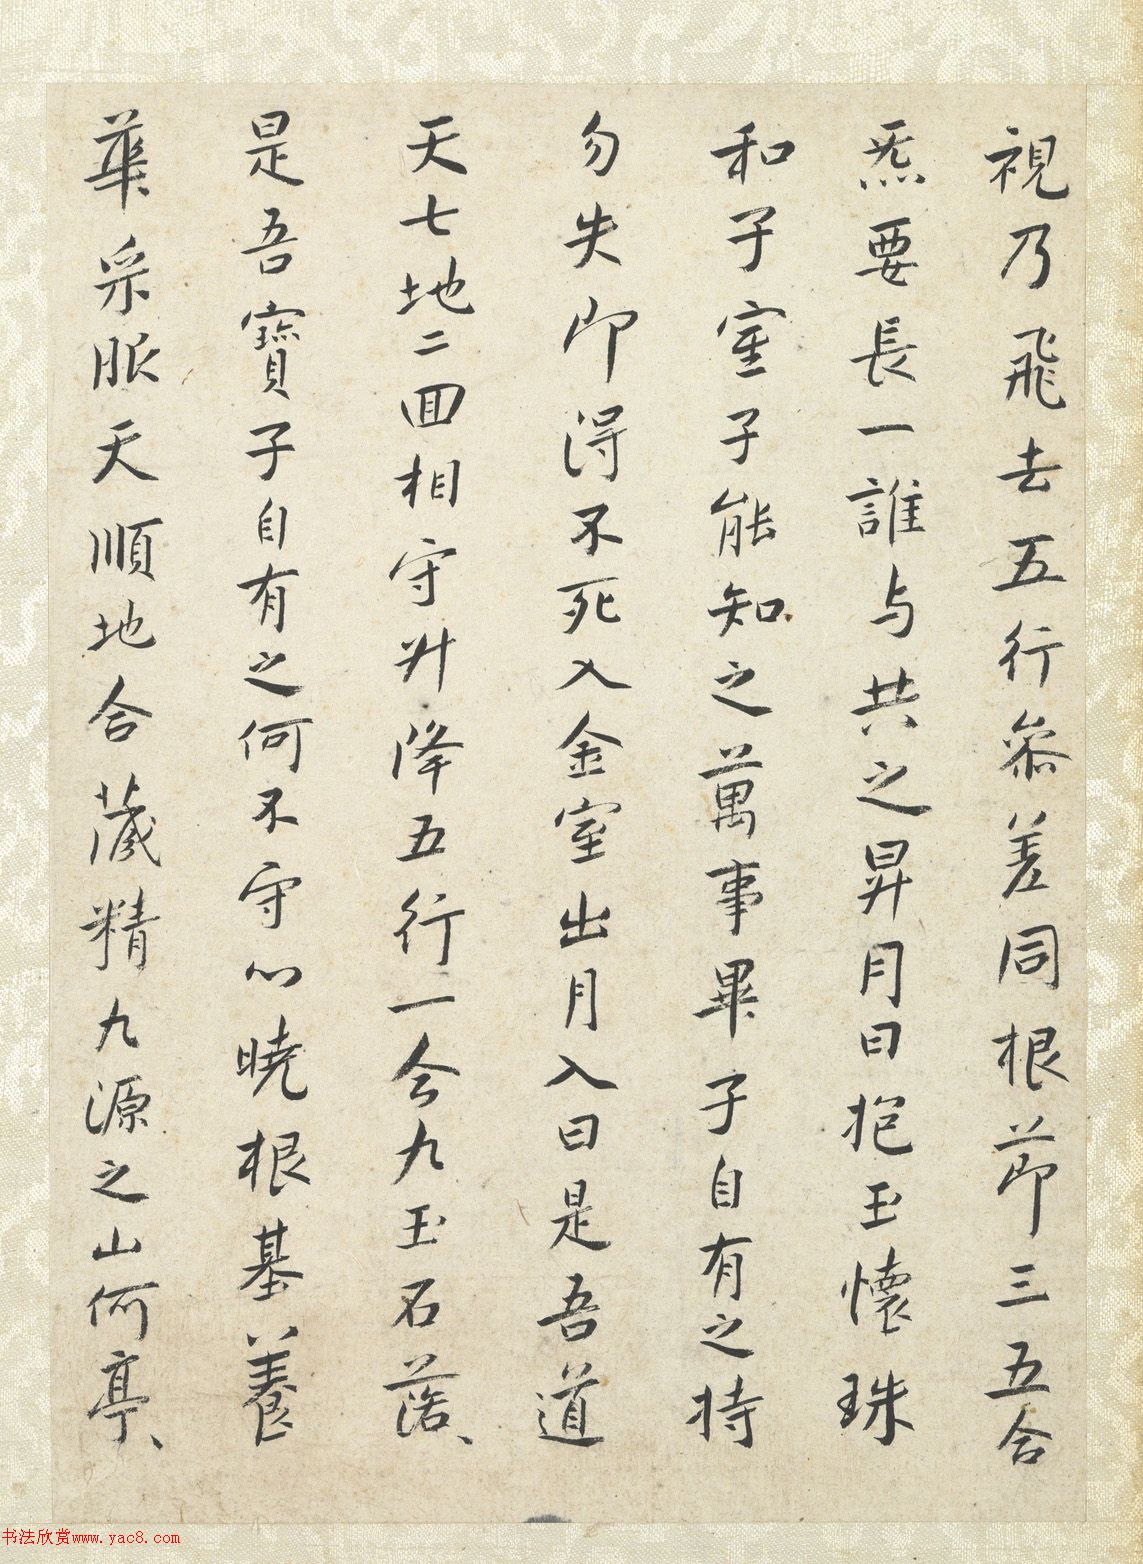 視乃飛去五行參差同根節三五合
炁要長一誰与共之昇月日抱玉懷珠
和子室子能知之萬事畢子自有之持
勿失即得不死入金室出月入日是吾道
天七地二回相守升降五行一合九玉石落落
是吾寶子自有之何不守心曉根基養
華采服天順地合藏精九源之山何亭亭
书法欣赏www.yac8.com